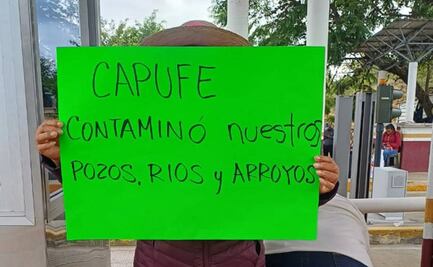 CAPUFE
CONTAMINÓ nuestros
POZOS, RIOS y ARROYOS